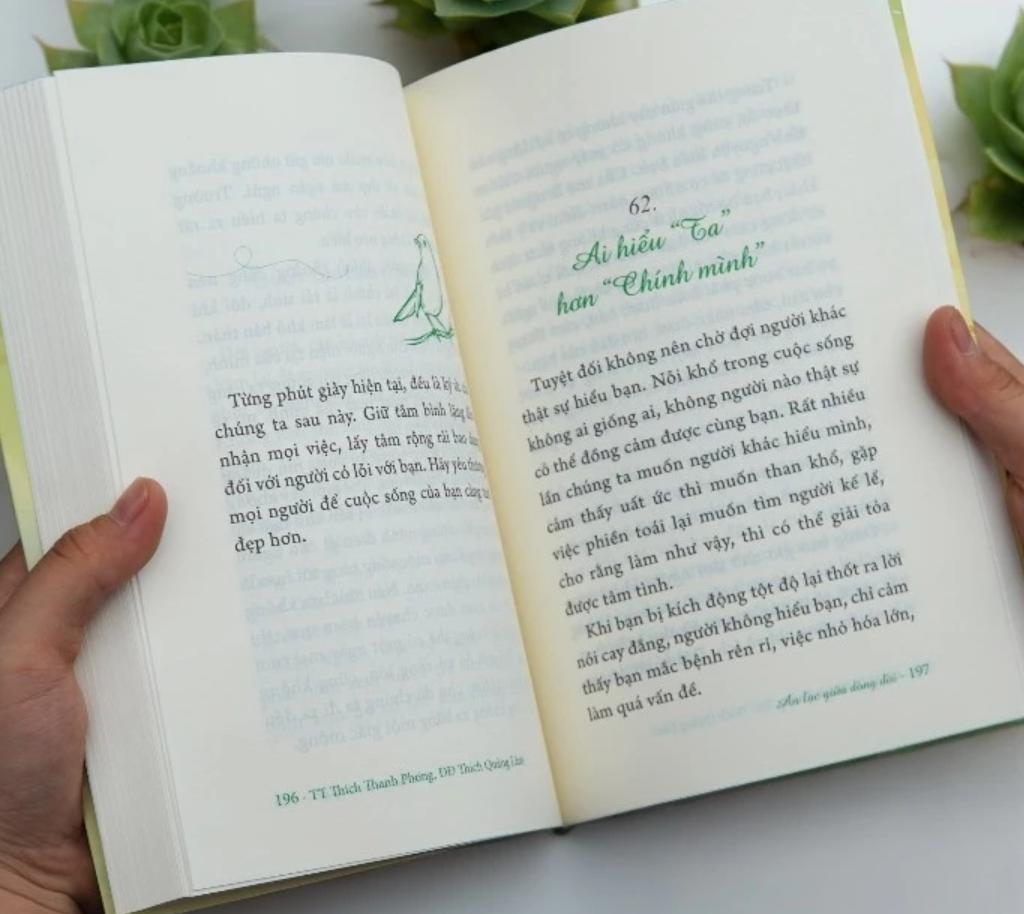 Từng phút giây hiện tại, đều là ký ức
chúng ta sau này. Giữ tâm bình lặng
nhận mọi việc, lấy tâm rộng rãi bao
đối với người có lỗi với bạn. Hãy yêu thương
mọi người để cuộc sống của bạn càng
đẹp hơn.
196 - TT Thích Thanh Phong, ĐĐ Thích Quảng
62.
Ai hiểu “Ta”
hơn “Chính mình”
Tuyệt đối không nên chờ đợi người khác
thật sự hiểu bạn. Nỗi khổ trong cuộc sống
không ai giống ai, không người nào thật sự
có thể đồng cảm được cùng bạn. Rất nhiều
lần chúng ta muốn người khác hiểu mình,
cảm thấy uất ức thì muốn than khổ, gặp
việc phiền toái lại muốn tìm người kể lể,
cho rằng làm như vậy, thì có thể giải tỏa
được tâm tình.
Khi bạn bị kích động tột độ lại thốt ra lời
nói cay đắng, người không hiểu bạn, chỉ cảm
thấy bạn mắc bệnh rên rỉ, việc nhỏ hóa lớn,
làm quá vấn đề.
An lạc giữa dòng đời - 197